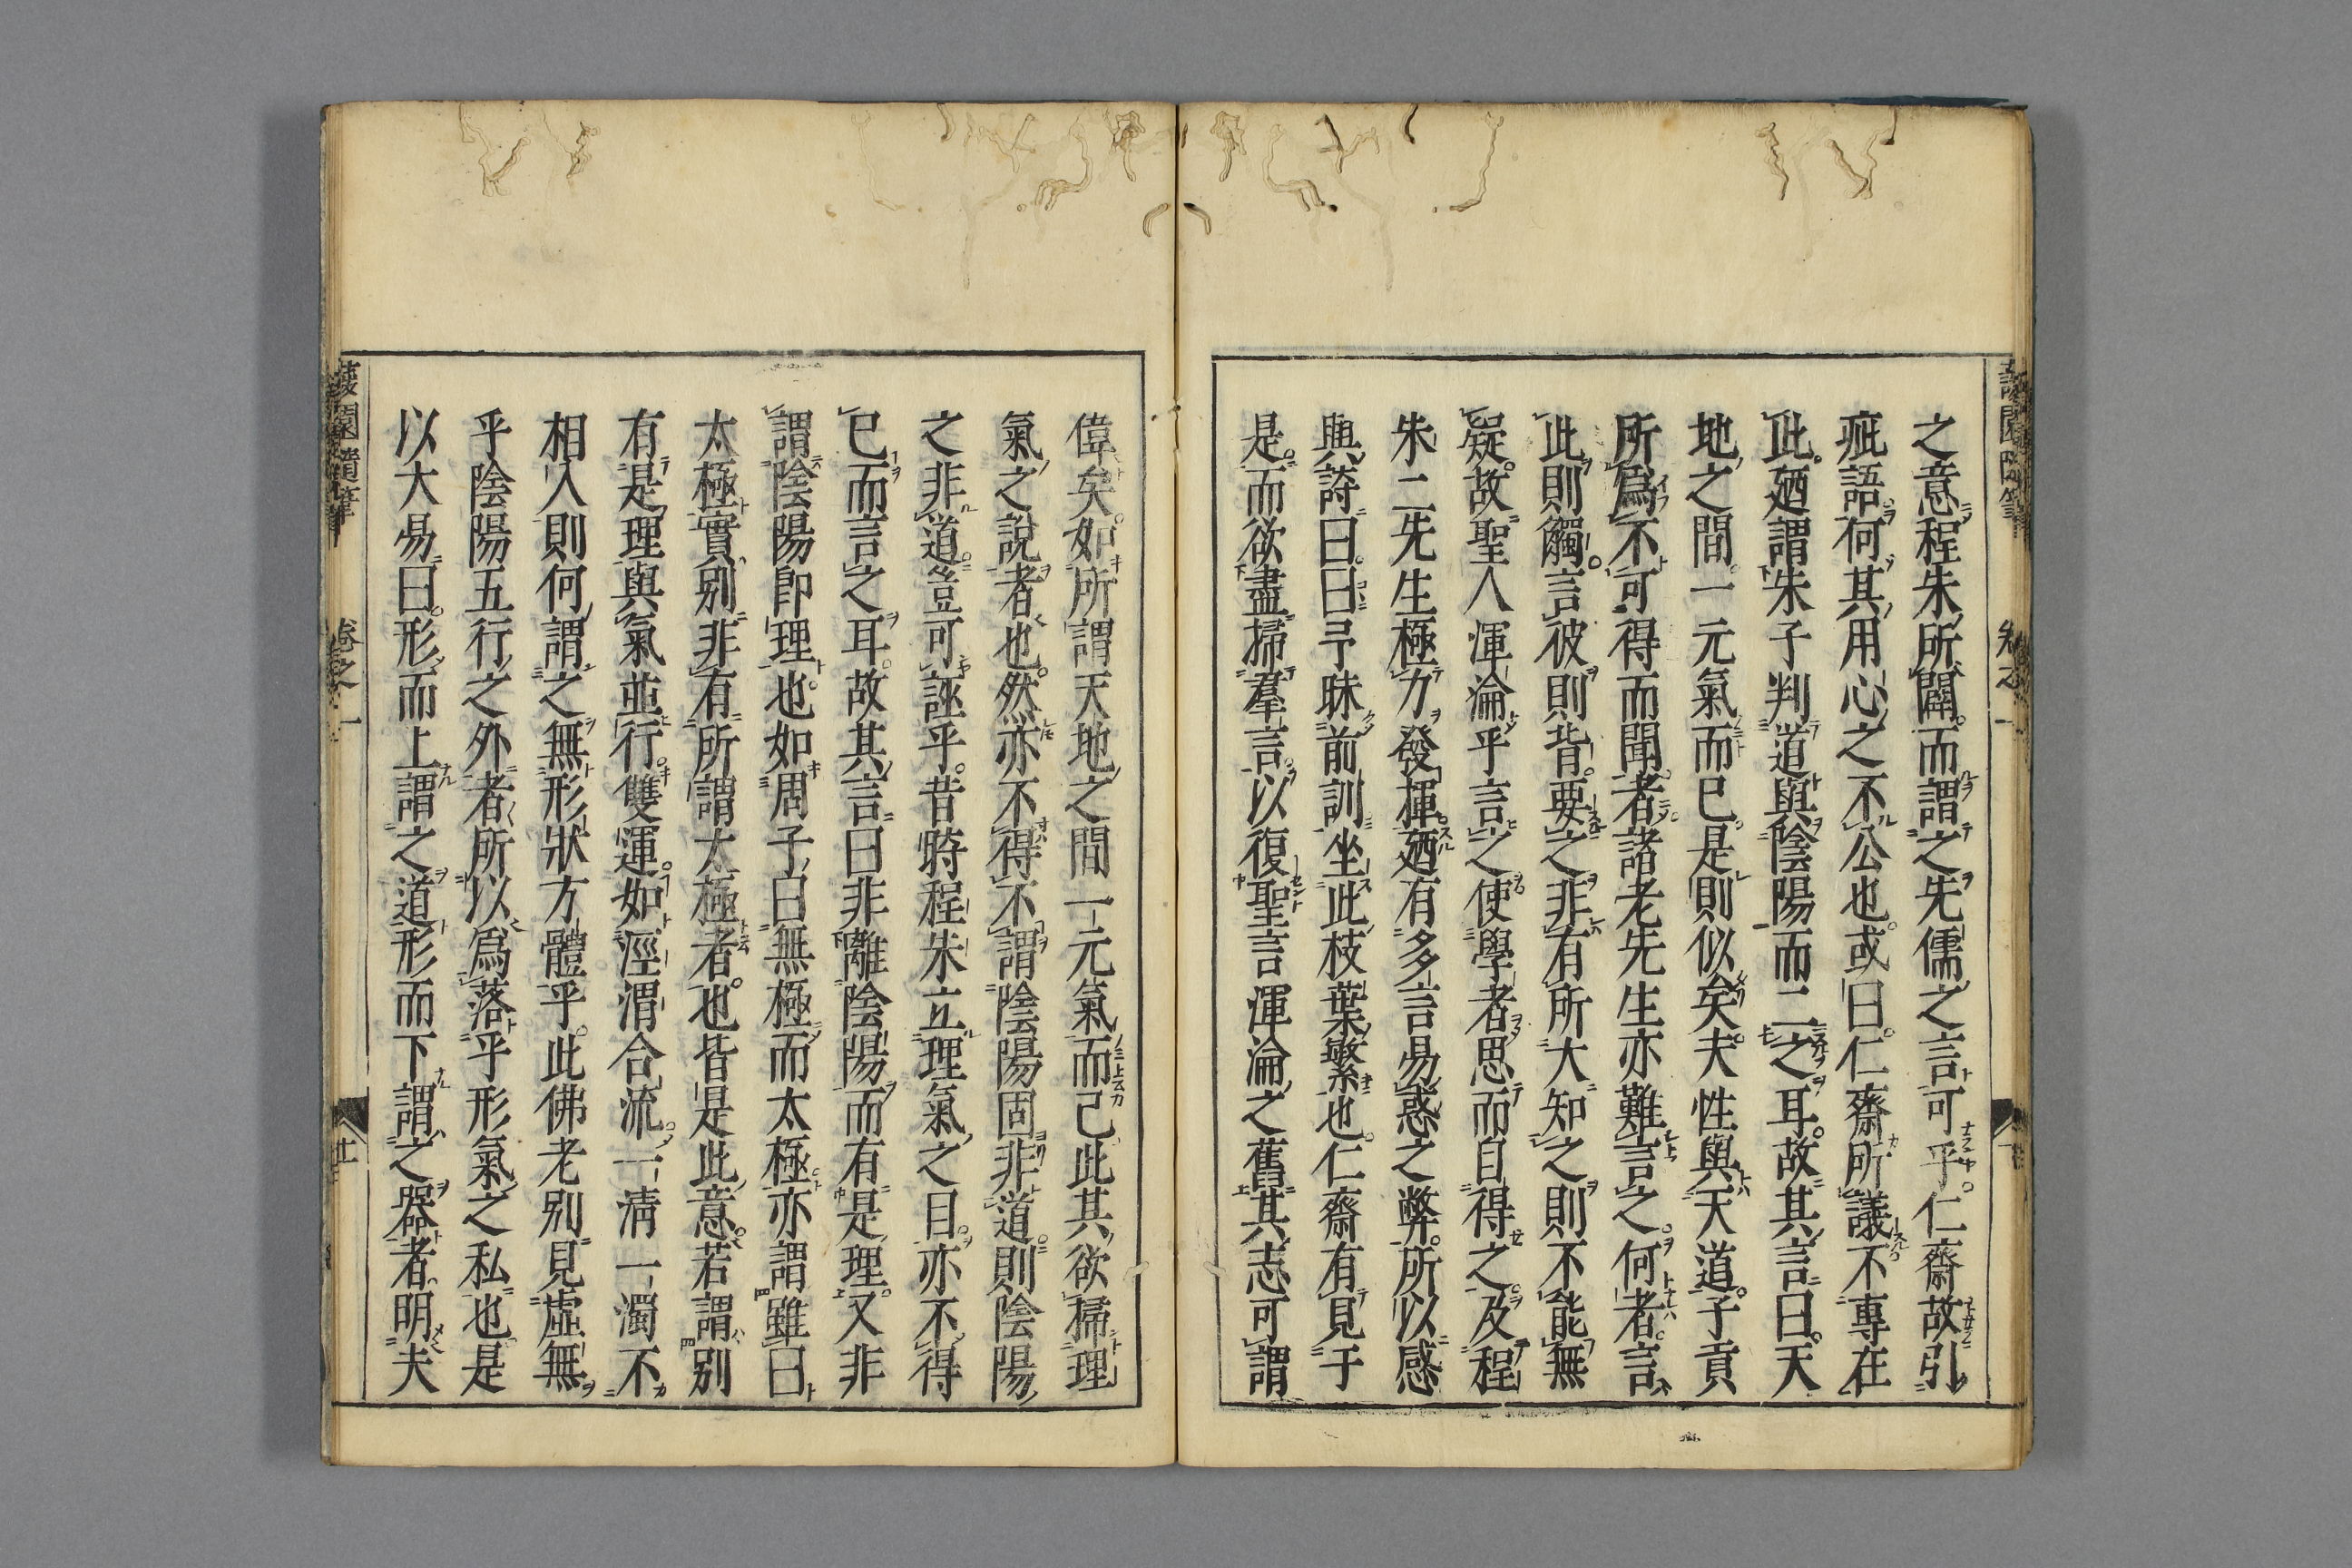 之意程朱所闢而謂之先儒之言可乎仁齋故引
疵語何其用心之不公也或曰仁齋所議不專在
此廼謂朱子判道與陰陽而二之耳故其言曰天
地之間一元氣而已是則似矣夫性與天道子貢
所爲不可得而聞者諸老先生亦難言之何者言
此則觸言彼則背要之非有所大知之則不能無
疑故聖人渾淪乎言之使學者思而自得之及程
朱二先生極力發揮廼有多言易惑之弊所以感
興詩曰曰予昧前訓坐此枝葉繁也仁齋有見于
是而欲盡掃羣言以復聖言渾淪之舊其志可謂
偉矣如所謂天地之間一元氣而已此其欲掃理
氣之說者也然亦不得不謂陰陽固非道則陰陽
之非道豈可誣乎昔時程朱立理氣之目亦不得
已而言之耳故其言曰非離陰陽而有是理又非
謂陰陽即理也如周子曰無極而太極亦謂雖曰
太極實別非有所謂太極者也皆是此意若謂別
有是理與氣並行雙運如涇渭合流一清一濁不
相入則何謂之無形狀方體乎此佛老別見虛無
乎陰陽五行之外者所以爲落乎形氣之私也是
以大易曰形而上謂之道形而下謂之器者明夫
蘐園隨筆
卷之一